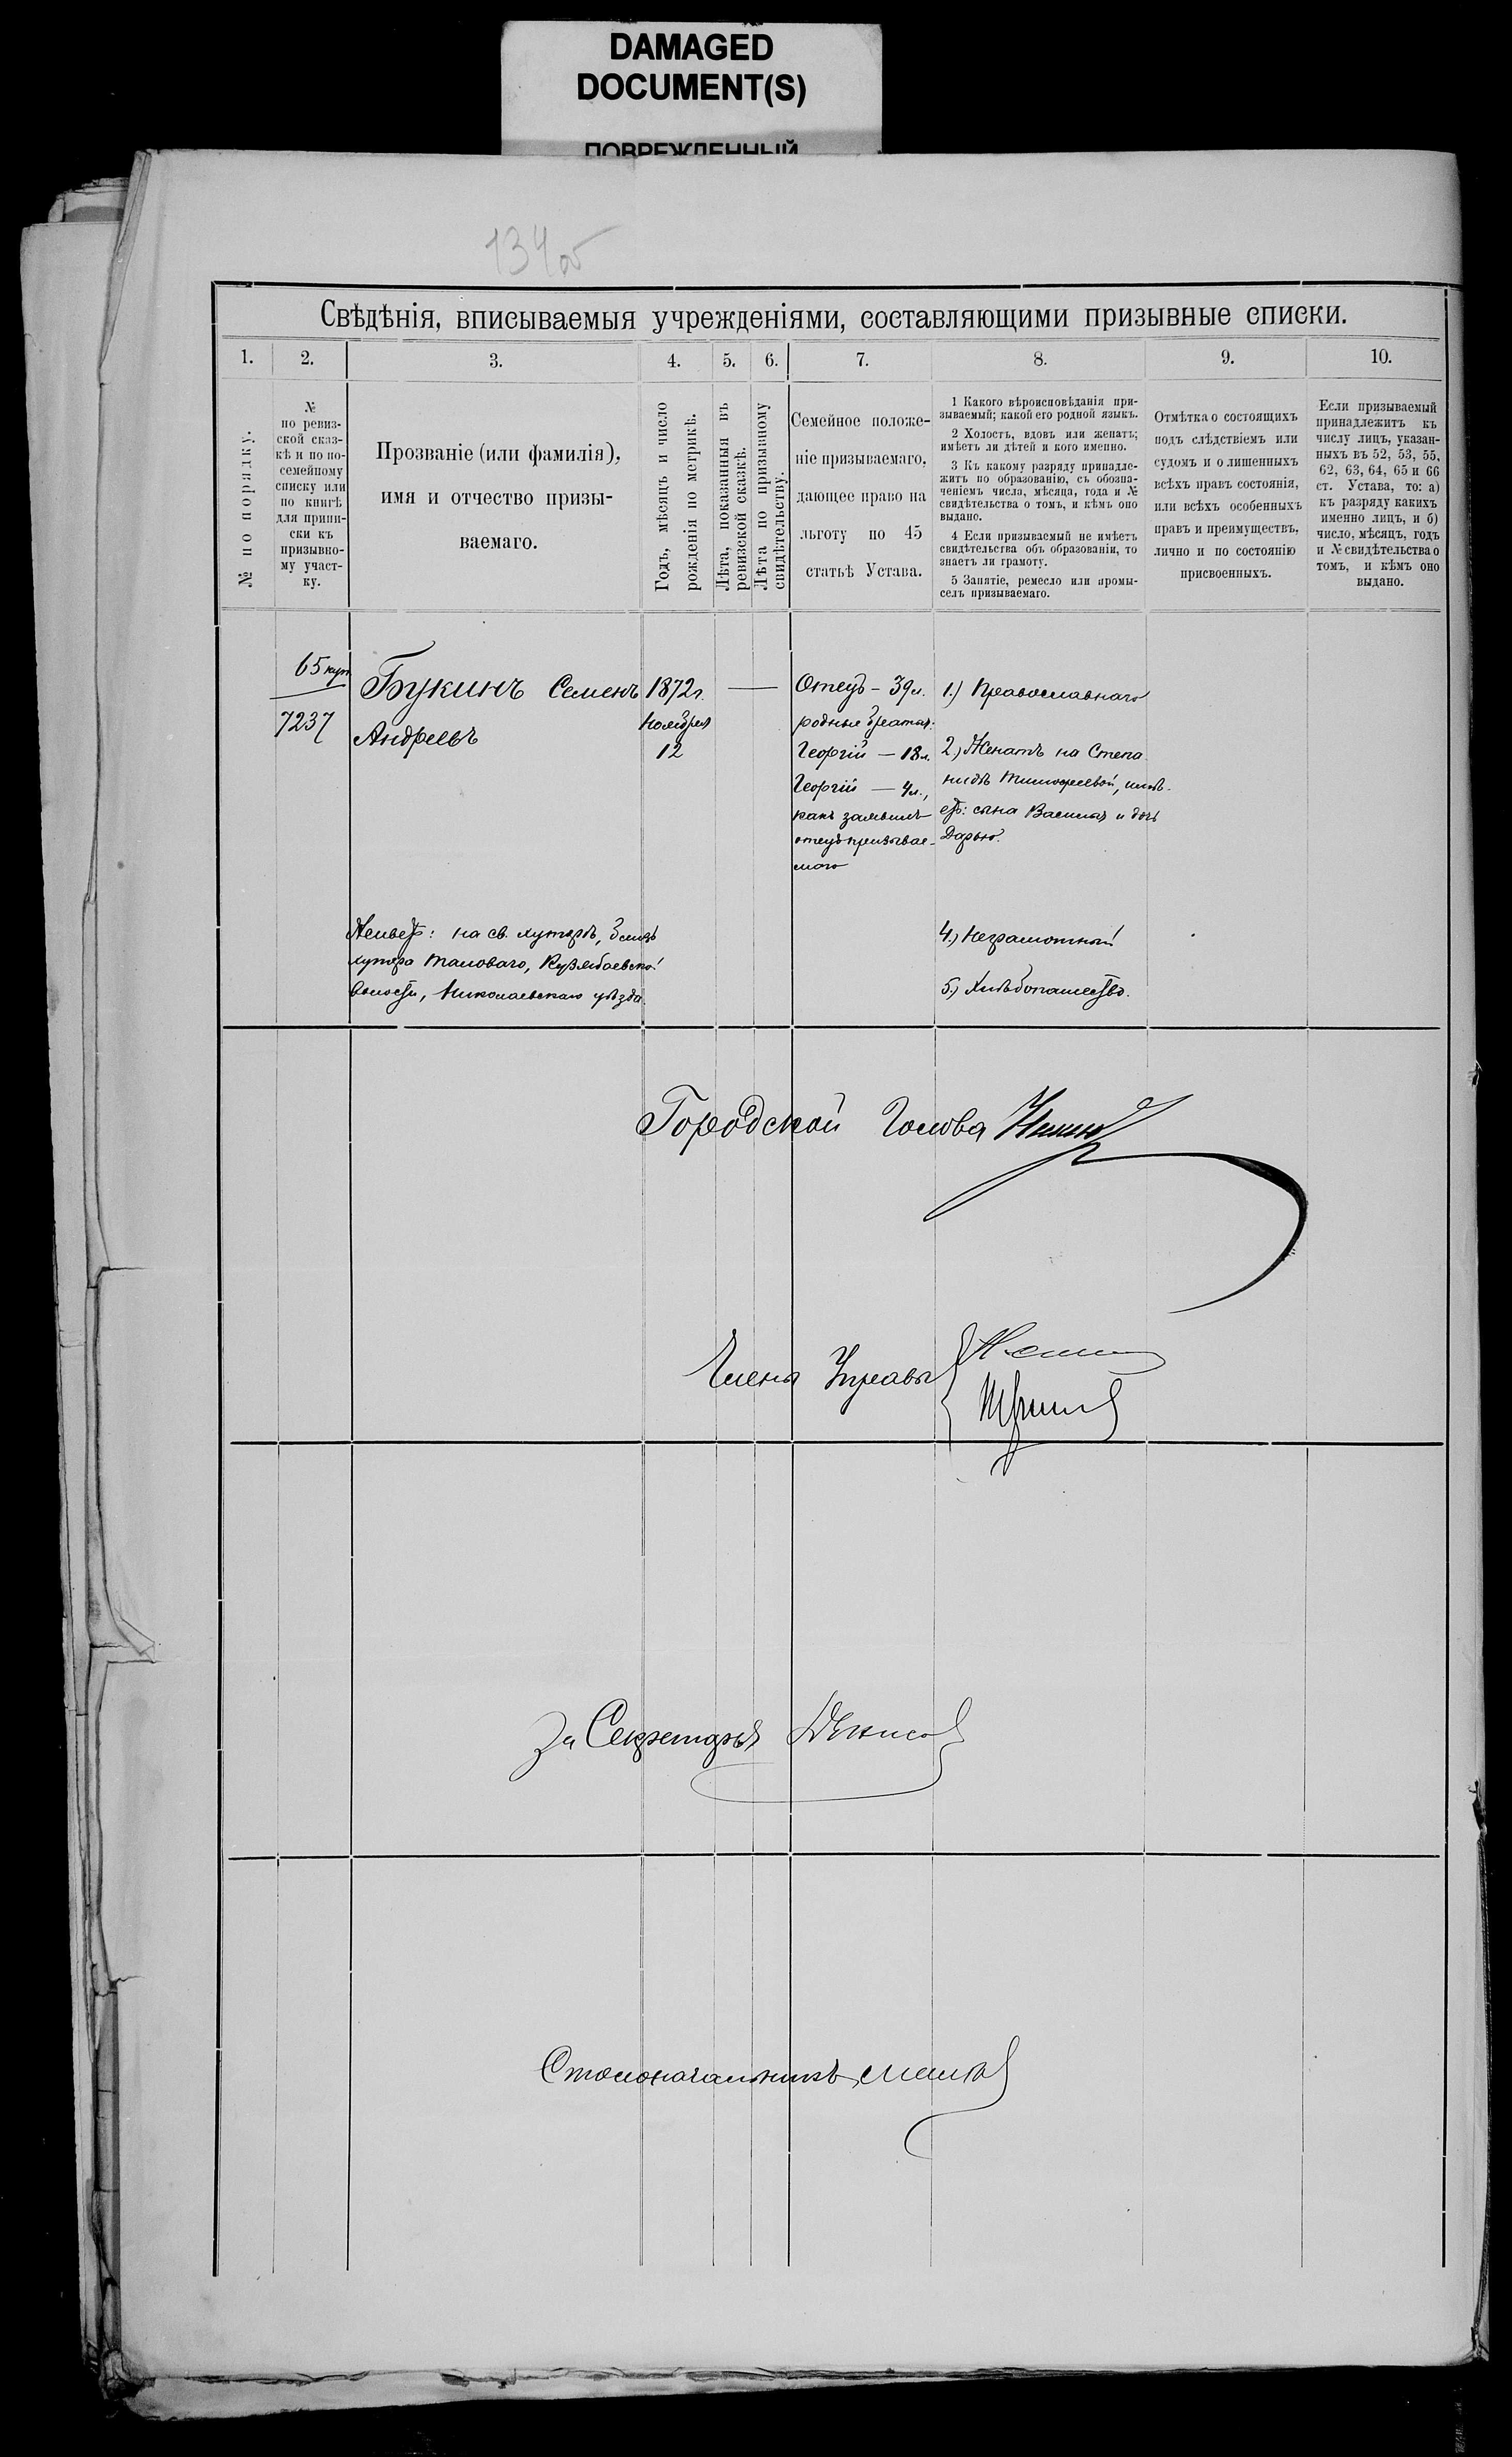 DAMAGED
DOCUMENT(S)
ПОВРЕЖДЕННЫЙ
134 об
Свѣдѣнія, вписываемыя учрежденіями, составляющими призывные списки.
1. 2. 3. 4. 5. 6. 7. 8. 9. 10.
№ по порядку.
№
по ревиз-
ской сказ-
кѣ и по по-
семейному
списку или
по книгѣ
для припи-
ски къ
призывно-
му участ-
ку.
Прозваніе (или фамилія),
имя и отчество призы-
ваемаго.
Годъ, мѣсяцъ и число
рожденія по метрикѣ.
Лѣта, показанныя въ
ревизской сказкѣ.
Лѣта по призывному
свидѣтельству.
Семейное положе-
ніе призываемаго,
дающее право на
льготу по 45
статьѣ Устава.
1 Какого вѣроисповѣданія при-
зываемый; какой его родной языкъ.
2 Холостъ, вдовъ или женатъ;
имѣетъ ли дѣтей и кого именно.
3 Къ какому разряду принадле-
житъ по образованію, съ обозна-
ченіемъ числа, мѣсяца, года и №
свидѣтельства о томъ, и кѣмъ оно
выдано.
4 Если призываемый не имѣетъ
свидѣтельства объ образованіи, то
знаетъ ли грамоту.
5 Занятіе, ремесло или промы-
селъ призываемаго.
Отмѣтка о состоящихъ
подъ слѣдствіемъ или
судомъ и о лишенныхъ
всѣхъ правъ состоянія,
или всѣхъ особенныхъ
правъ и преимуществъ,
лично и по состоянію
присвоенныхъ.
Если призываемый
принадлежитъ къ
числу лицъ, указан-
ныхъ въ 52, 53, 55,
62, 63, 64, 65 и 66
ст. Устава, то: а)
къ разряду какихъ
именно лицъ, и б)
число, мѣсяцъ, годъ
и № свидѣтельства о
томъ, и кѣмъ оно
выдано.
65 куп
7237
Букинъ Семенъ
Андреевъ
Живетъ: на св. хуторѣ, близъ
хутора Таловаго, Кузябаевской
волости, Николаевскаго уѣзда.
1872 г.
Ноября
12
Отецъ – 39 л.
родные братья:
Георгій — 18 л.
Георгій — 4 л.,
какъ заявилъ
отецъ призывае-
маго
1.) Православнаго
2.) Женатъ на Степа
нидѣ Тимофеевой, имѣ-
етъ: сына Василія и дочь
Дарью.
4.) Неграмотный
5.) Хлѣбопашество.
Городской Голова
Члены Управы
За Секретаря Денисов
Столоначальникъ